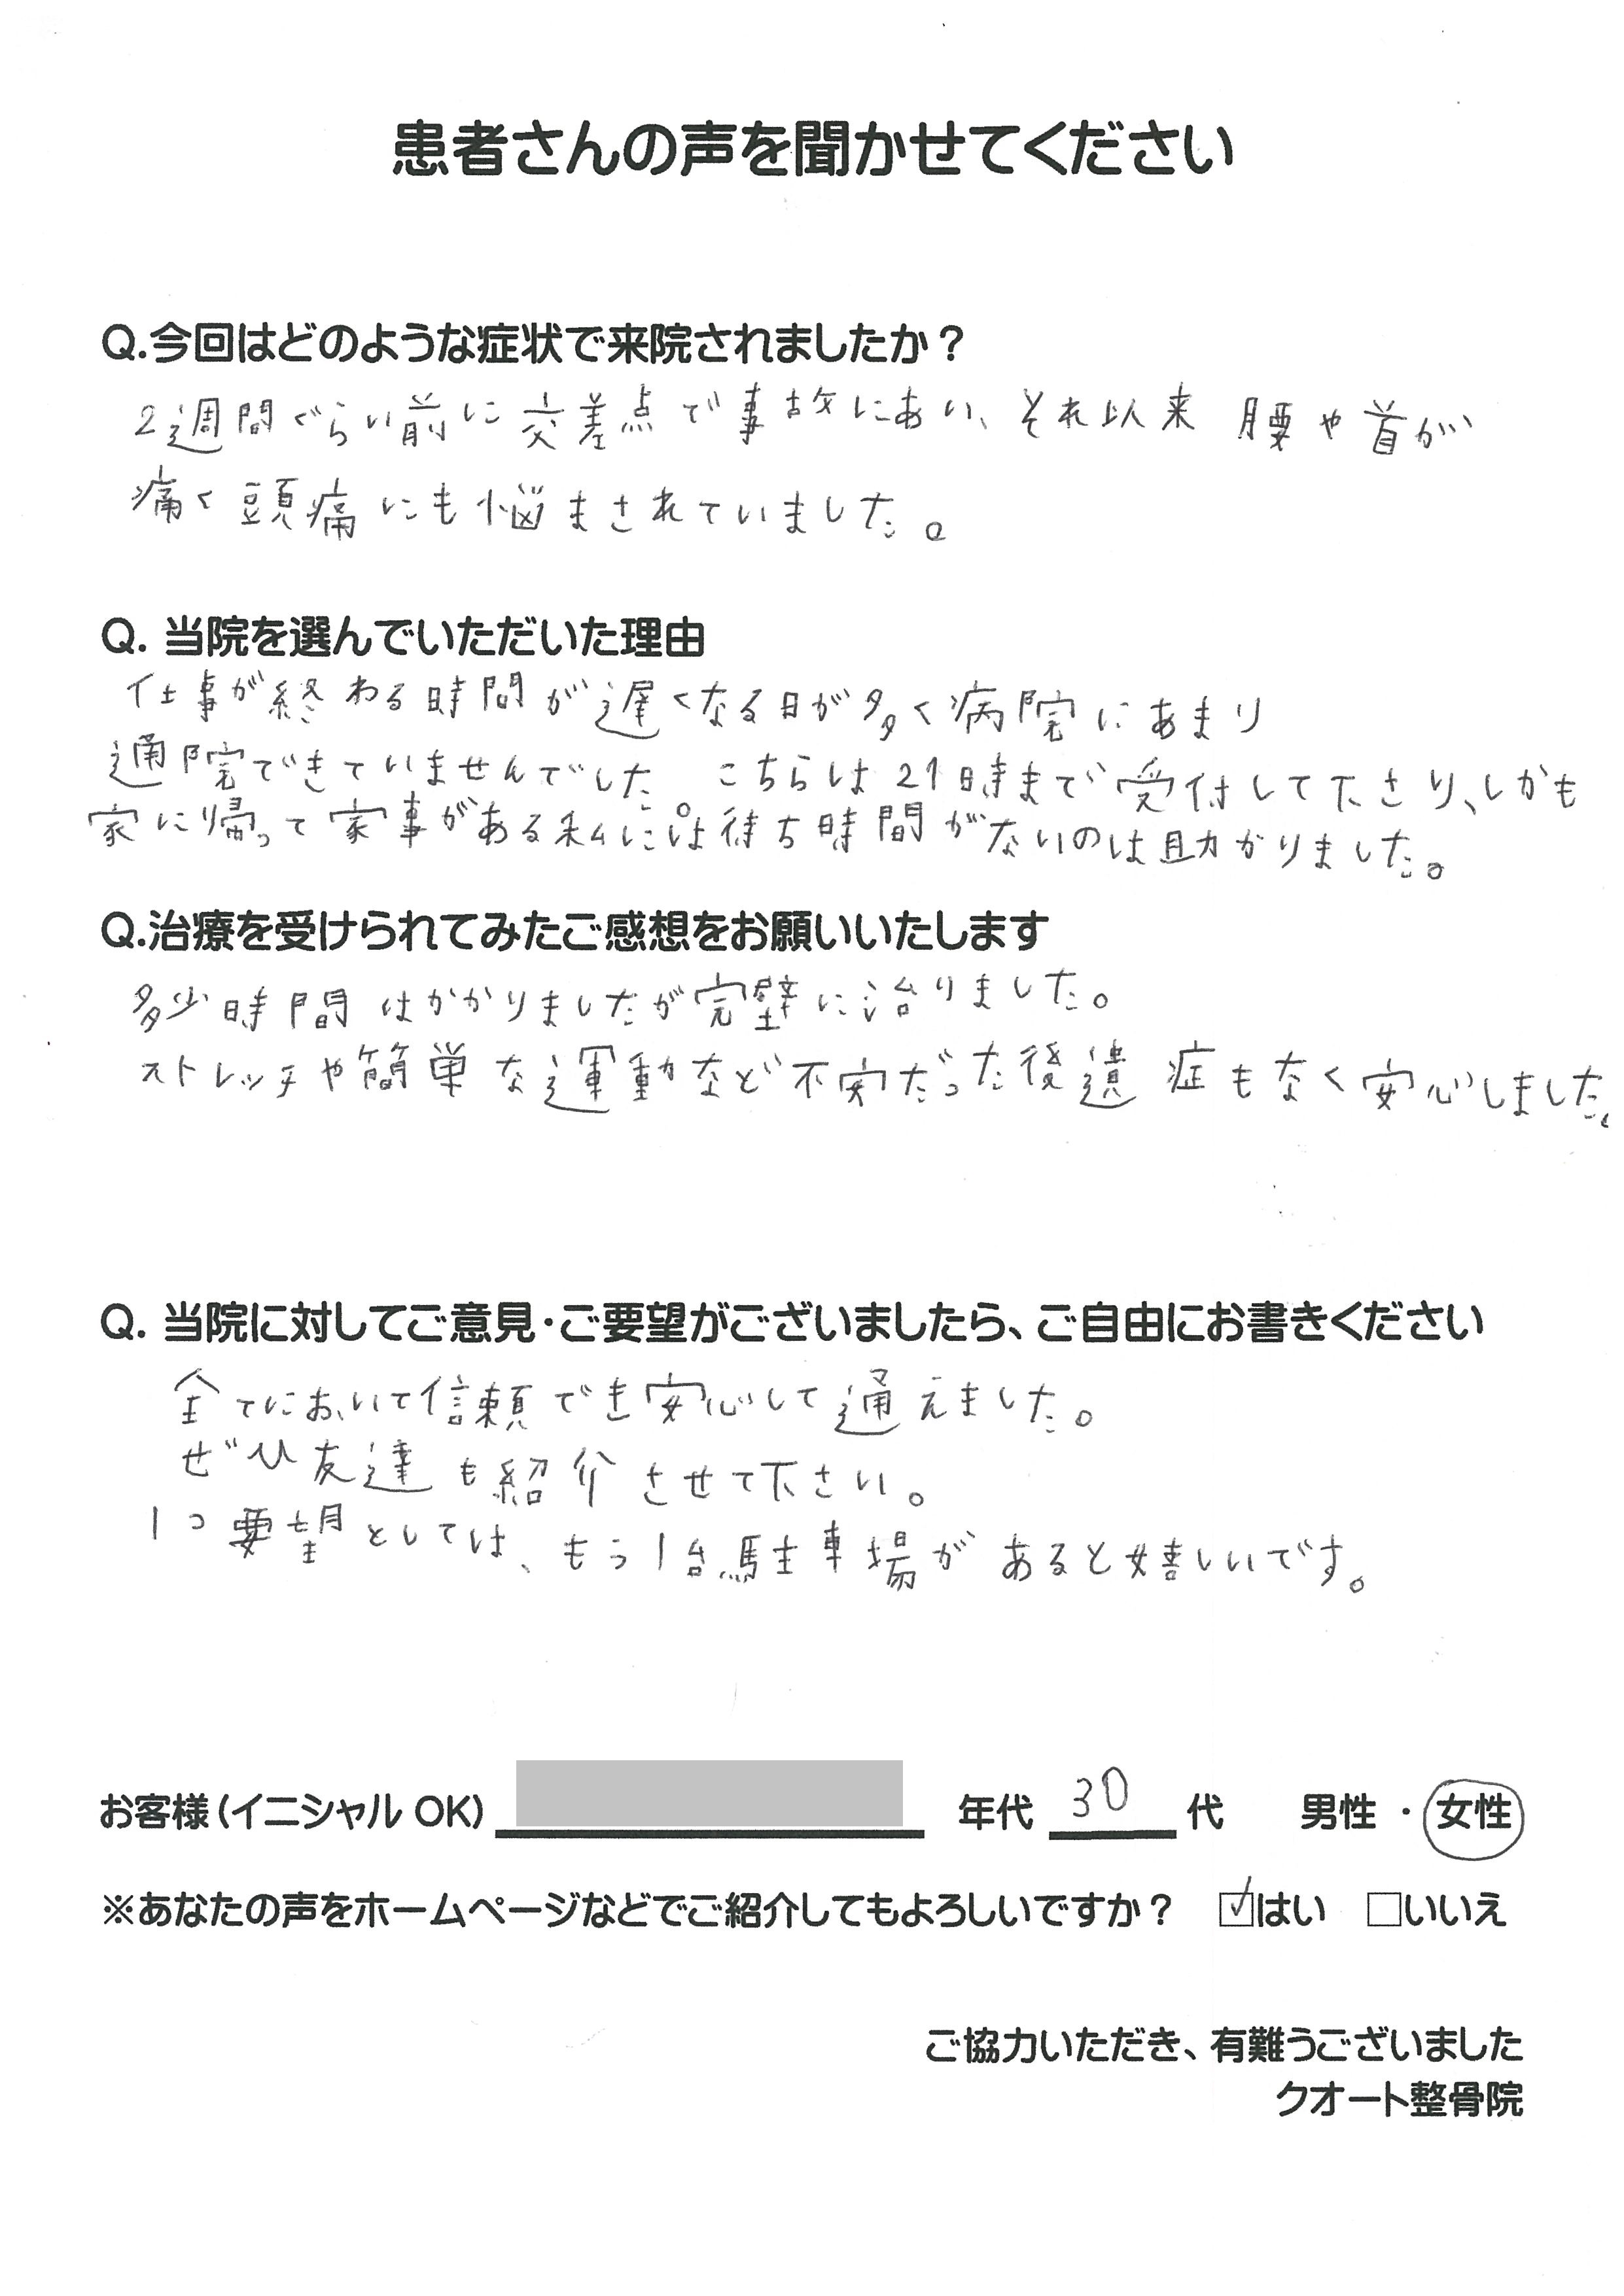 患者さんの声を聞かせてください
Q.今回はどのような症状で来院されましたか？
2週間ぐらい前に交差点で事故にあい、それ以来 腰や首が
痛く頭痛にも悩まされていました。
Q. 当院を選んでいただいた理由
仕事が終わる時間が遅くなる日が多く病院にあまり
通院できていませんでした。こちらは21時まで受付して下さり、しかも
家に帰って家事がある私には待ち時間がないのは助かりました。
Q.治療を受けられてみたご感想をお願いいたします
多少時間はかかりましたが完璧に治りました。
ストレッチや簡単な運動など不安だった後遺症もなく安心しました。
Q. 当院に対してご意見・ご要望がございましたら、ご自由にお書きください
全てにおいて信頼でき安心して通えました。
ぜひ友達も紹介させて下さい。
1つ要望としては、もう1台駐車場があると嬉しいです。
お客様（イニシャル OK） 年代 30 代 男性 ・ 女性
※あなたの声をホームページなどでご紹介してもよろしいですか？ ☑はい □いいえ
ご協力いただき、有難うございました
クオート整骨院